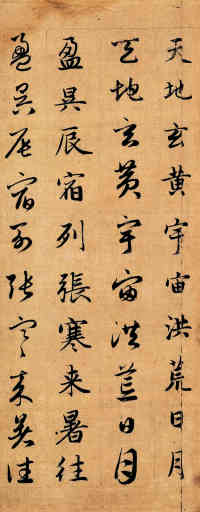 天地玄黃宇宙洪荒日月
天地玄黃宇宙洪荒日月
盈昃辰宿列張寒来暑往
盈昃辰宿列張寒来暑往